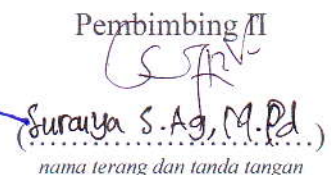 Pembimbing II
(Suraiya S.Ag, M.Pd)
nama terang dan tanda tangan